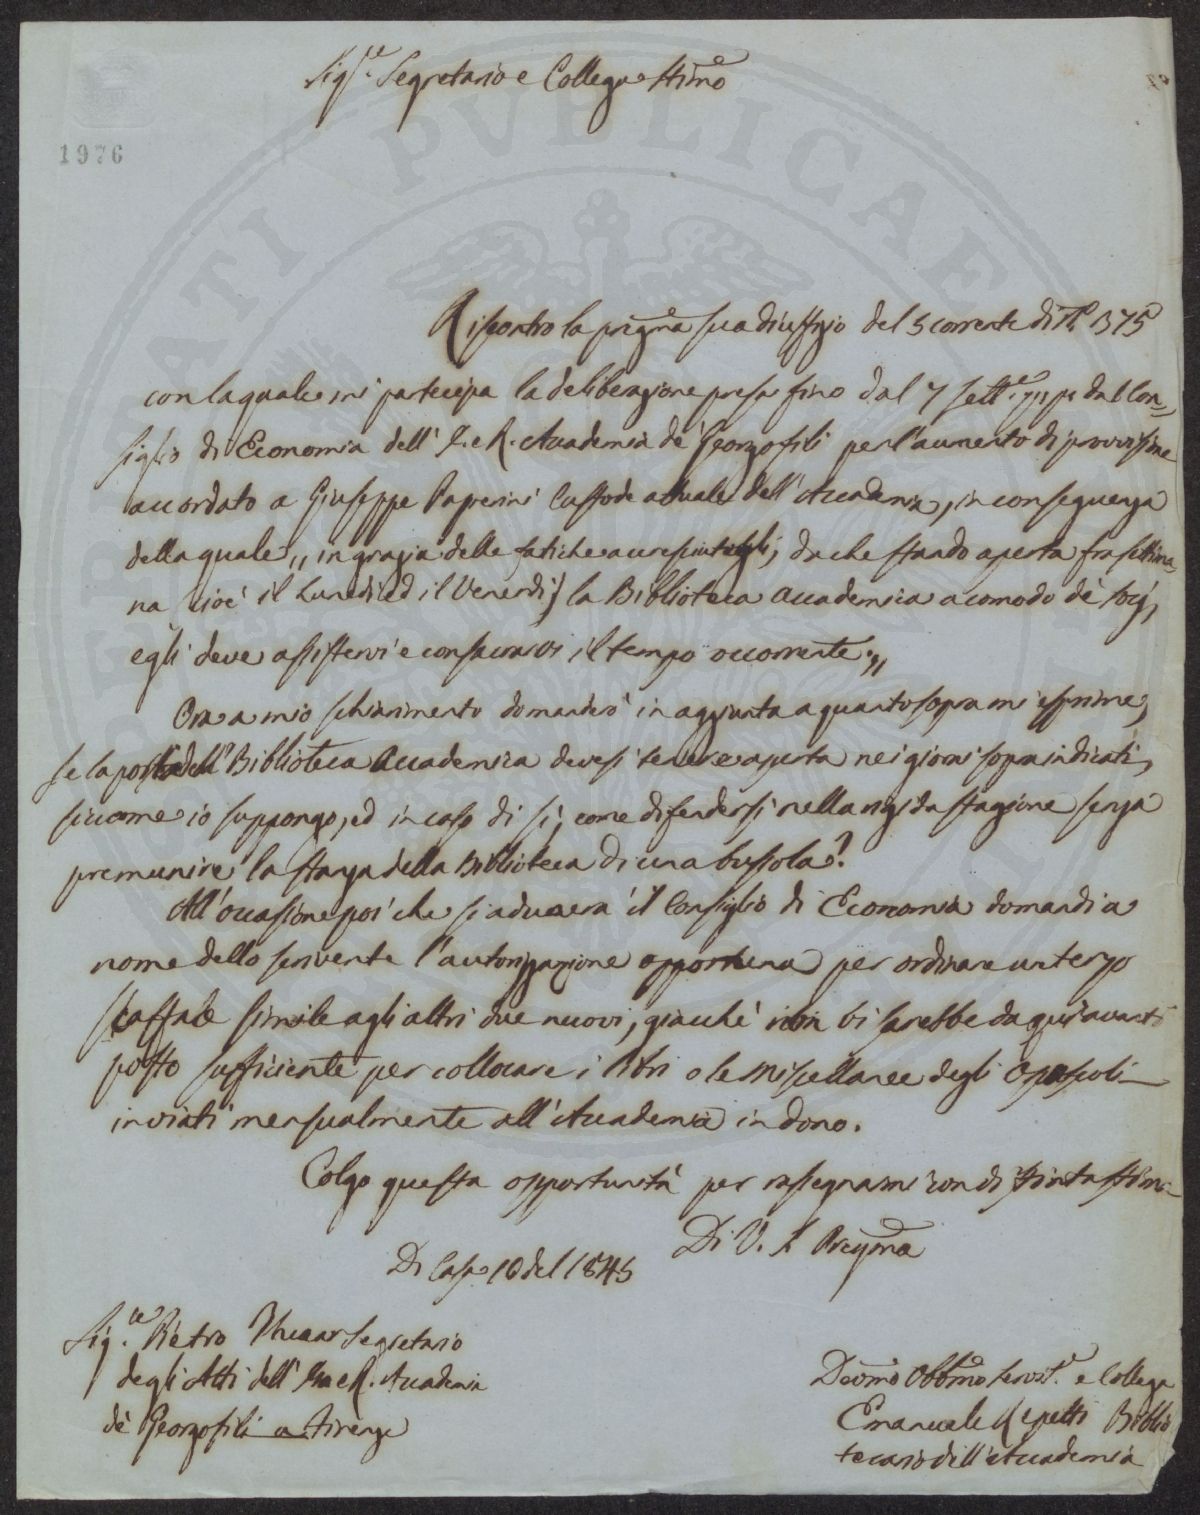 Sig.re Segretario e Collega Stimo
1976
PROSPERITATI PVBLICAE
Riscontro la pregma sua d'uffizio del 5 corrente di No 1375
con la quale mi partecipa la deliberazione presa fino dal 7 Sett.e pp dal Con-
siglio di Economia dell' I. e R. Accademia de' Georgofili per l'aumento di provvisione
accordato a Giuseppe Paperini Custode attuale dell' Accademia, in conseguenza
della quale ,, in grazia delle fatiche accresciutegli, da che stando aperta fra settima-
na (cioè il Lunedì ed il Venerdì) la Biblioteca Accademica a comodo de' socj,
egli deve assistervi e consacrarvi il tempo occorrente.,,
Ora a mio schiarimento domanderò in aggiunta a quanto sopra mi esprime,
se la porta dell' Biblioteca Accademica devesi tenere aperta nei giorni sopraindicati,
siccome io suppongo, ed in caso di sì, come difendersi nella rigida stagione senza
premunire la stanza della Biblioteca di una bussola?
All' occasione poi che si adunerà il Consiglio di Economia domandi a
nome dello scrivente l'autorizzazione opportuna per ordinare un terzo
scaffale simile agli altri due nuovi, giacchè non vi sarebbe da qui avanti
posto sufficiente per collocare i libri o le miscellanee degli Opuscoli
inviati mensualmente all' Accademia in dono.
Colgo questa opportunità per rassegnarmi con distinta stima
Di V. S. Pregma
Di Casa 10 del 1845
Sig.re Pietro Segretario
degli Atti dell' I. e R. Accademia
de' Georgofili a Firenze
Devmo Obbmo Servit.e e Collega
Emanuele Repetti Biblio
tecario dell' Accademia